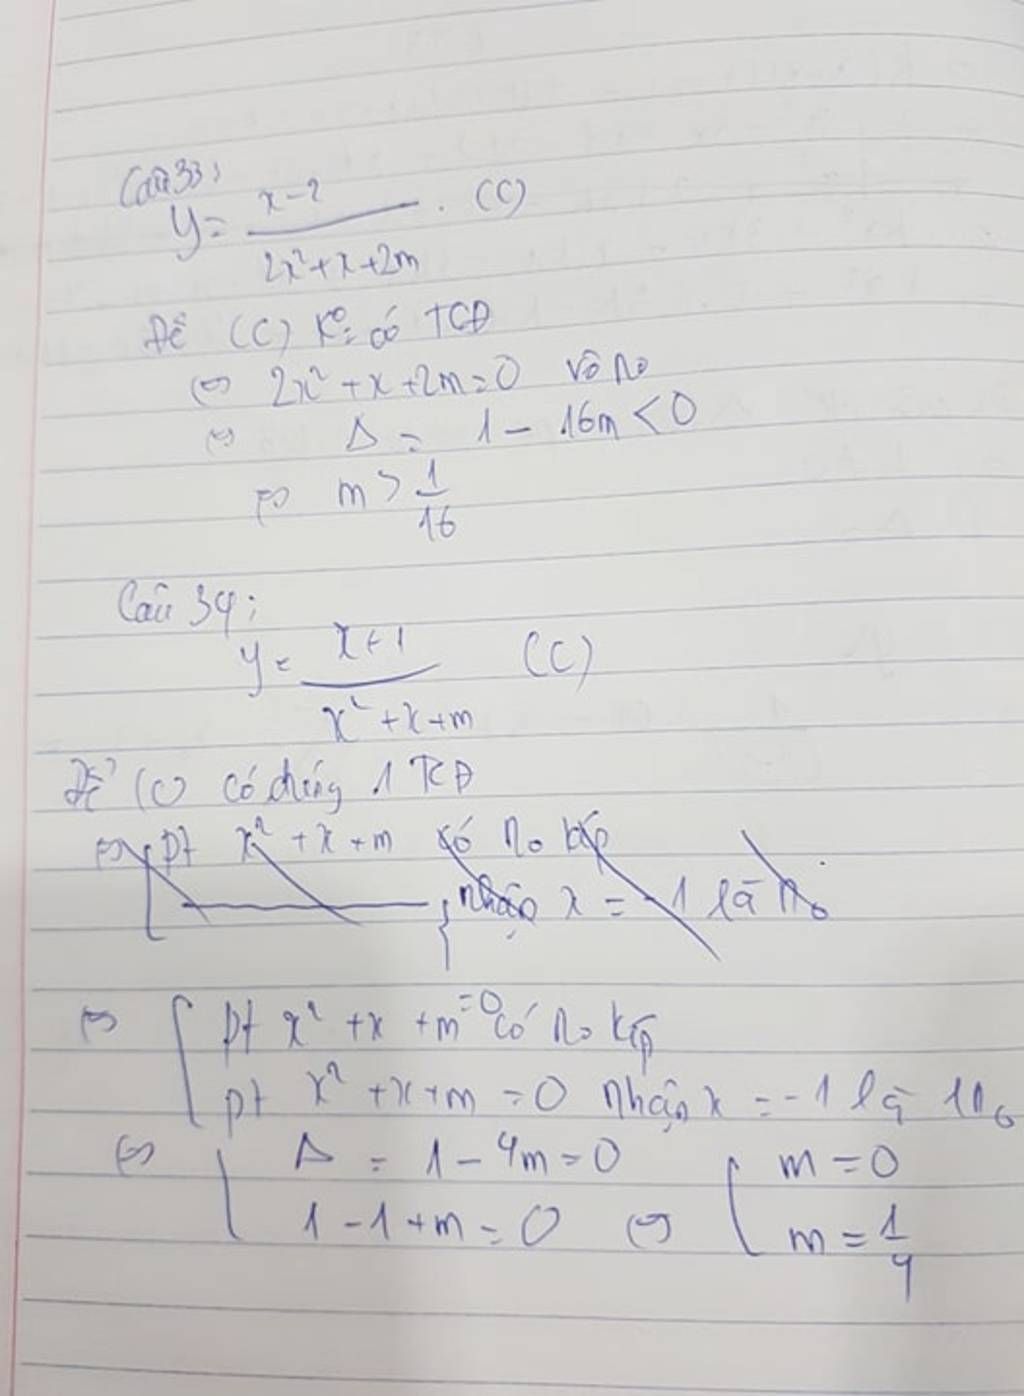 Câu 33:
y = x-2 / 2x²+x+2m . (C)
Để (C) k° có TCĐ
⇔ 2x² + x + 2m = 0 vô n₀
⇔ Δ = 1 - 16m < 0
⇔ m > 1/16
Câu 34:
y = x+1 / x²+x+m (C)
Để (C) có đúng 1 TCĐ
⇔ pt x² + x + m có n₀ kép
nhận x = -1 là n₀
⇔ [ pt x² + x + m = 0 có n₀ kép
pt x² + x + m = 0 nhận x = -1 là 1 n₀
⇔ [ Δ = 1 - 4m = 0 [ m = 0
1 - 1 + m = 0 ⇔ m = 1/4